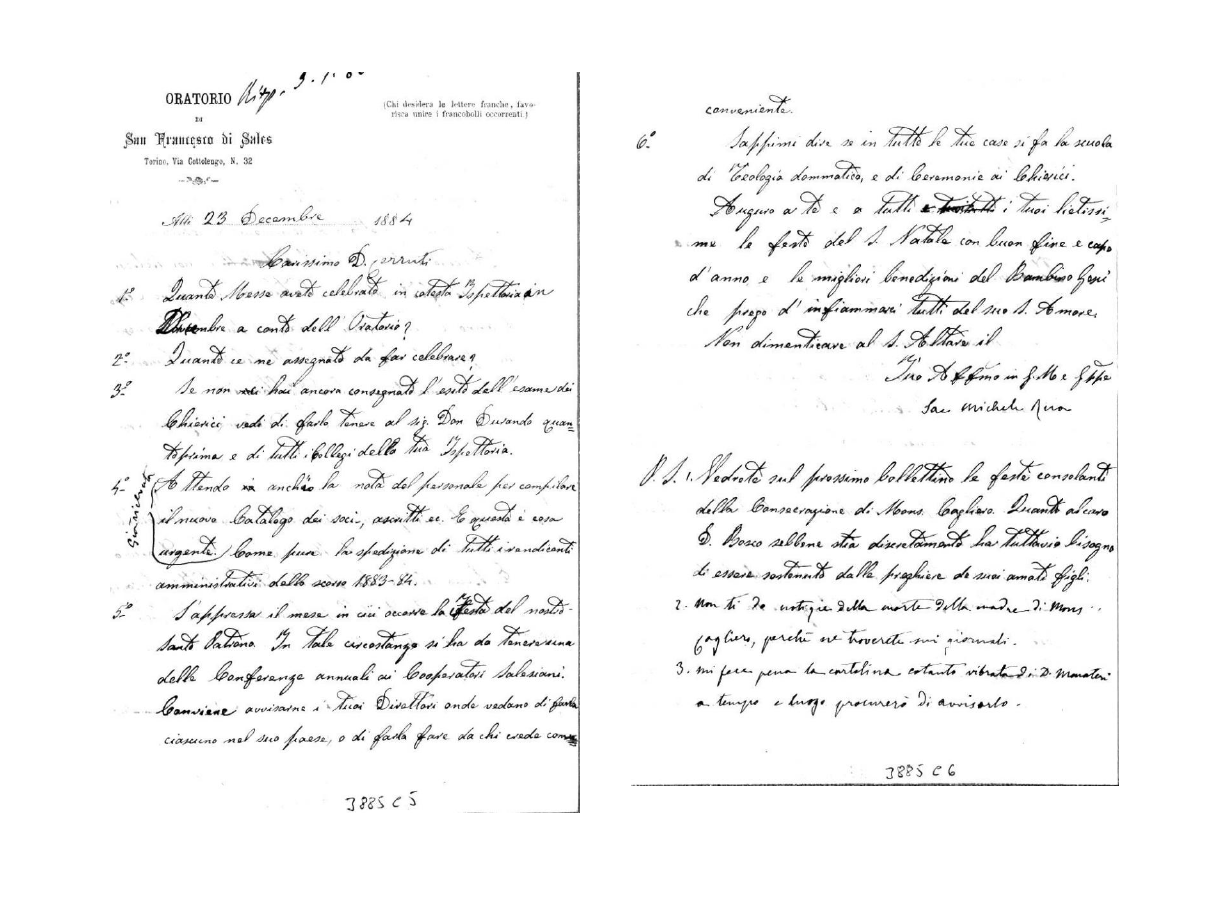 ORATORIO
DI
San Francesco di Sales
Torino, Via Cottolengo, N. 32
Risp.
(Chi desidera le lettere franche, favo-
risca unire i francobolli occorrenti.)
Alli 23 Decembre 1884
Carissimo D. Cerruti
1° Quante Messe avete celebrato in cotesta Ispettoria in
Decembre a conto dell' Oratorio?
2° Quante ce ne assegnate da far celebrare?
3° Se non hai ancora consegnato l'esito dell'esame dei
Chierici vedi di farlo tenere al sig. Don Durando quan=
toprima e di tutti i Collegi della tua Ispettoria.
4° Attendo anche la nota del personale per compilare
il nuovo Catalogo dei soci, ascritti ec. E questa è cosa
urgente. Come pure la spedizione di tutti i rendiconti
amministrativi dello scorso 1883-84.
5° S'appressa il mese in cui occorre la festa del nostro
santo Patrono. In tale circostanza si ha da tenere una
delle Conferenze annuali ai Cooperatori Salesiani.
Conviene avvisarne i tuoi Direttori onde vedano di farla
ciascuno nel suo paese, o di farla fare da chi crede
3885 C 5
conveniente.
6° Sappimi dire se in tutte le tue case si fa la scuola
di Teologia dommatica, e di Ceremonie ai Chierici.
Auguro a te e a tutti i tuoi lietissi-
me le feste del S. Natale con buon fine e capo
d'anno e le migliori benedizioni del Bambino Gesù
che prego d'infiammarci tutti del suo S. Amore.
Non dimenticare al S. Altare il
Tuo Affmo in G. M. e Gppe
Sac Michele Rua
P. S. 1. Vedrete sul prossimo bollettino le feste consolanti
della Consecrazione di Mons. Cagliero. Quanto al caro
D. Bosco sebbene stia discretamente ha tuttavia bisogno
di essere sostenuto dalle preghiere de suoi amati figli.
2. Non ti do notizie della morte della madre di Mons.
Cagliero, perchè ne troverete sui giornali.
3. Mi fece pena la cartolina cotanto vibrata di D.
a tempo e luogo procurerò di avvisarlo.
3885 C 6